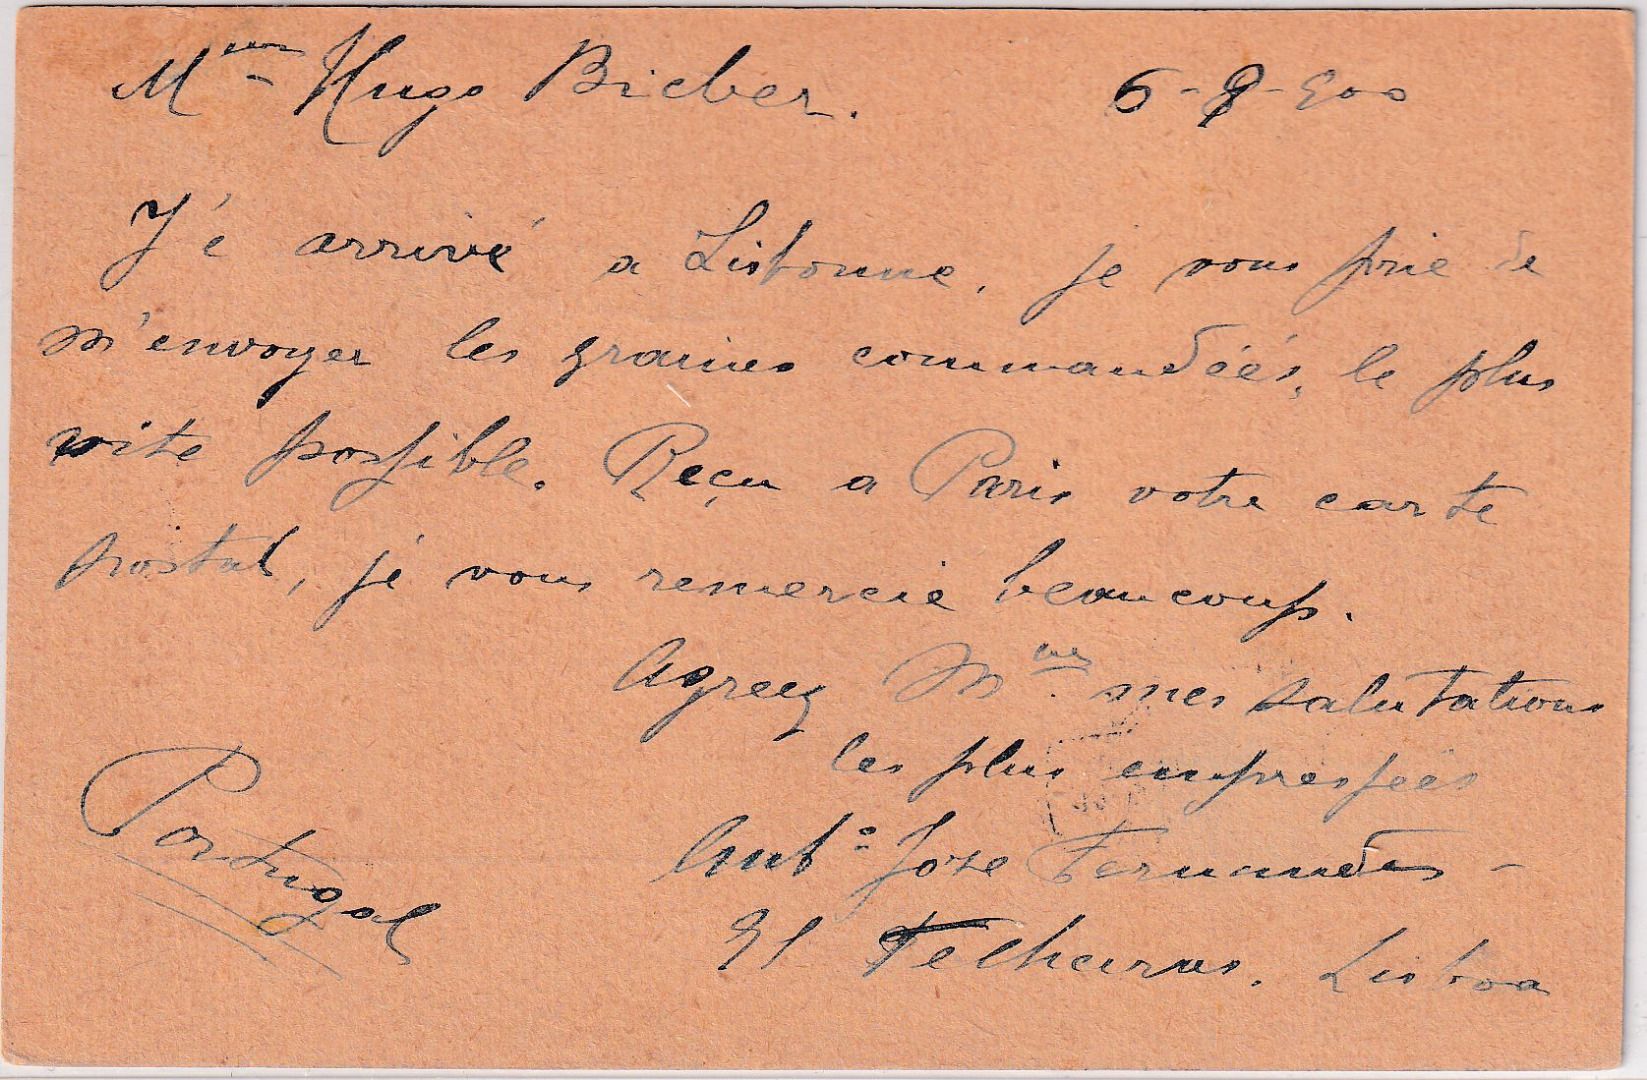 M^eur Hugo Bieber. 6-8-900
J'é arrivé a Lisbonne, je vous prie de
m'envoyer les graines commandéés, le plus
vite possible. Reçu a Paris votre carte
postal, jé vous remercie beaucoup.
Agreez M^eur mes salutations
les plus empressées
Antº Jose Fernandes -
Telheiras. Lisboa
Portugal